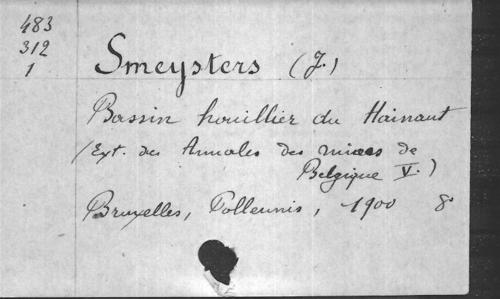 483
312
1
Smeysters (J.)
Bassin houillier du Hainaut
(Ext. des Annales des mines de
Belgique V.)
Bruxelles, Polleunis, 1900 8°